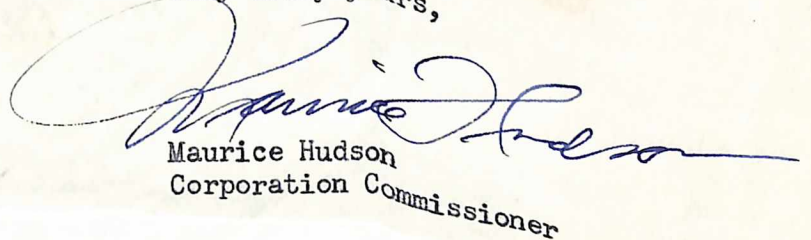 Maurice Hudson
Maurice Hudson
Corporation Commissioner